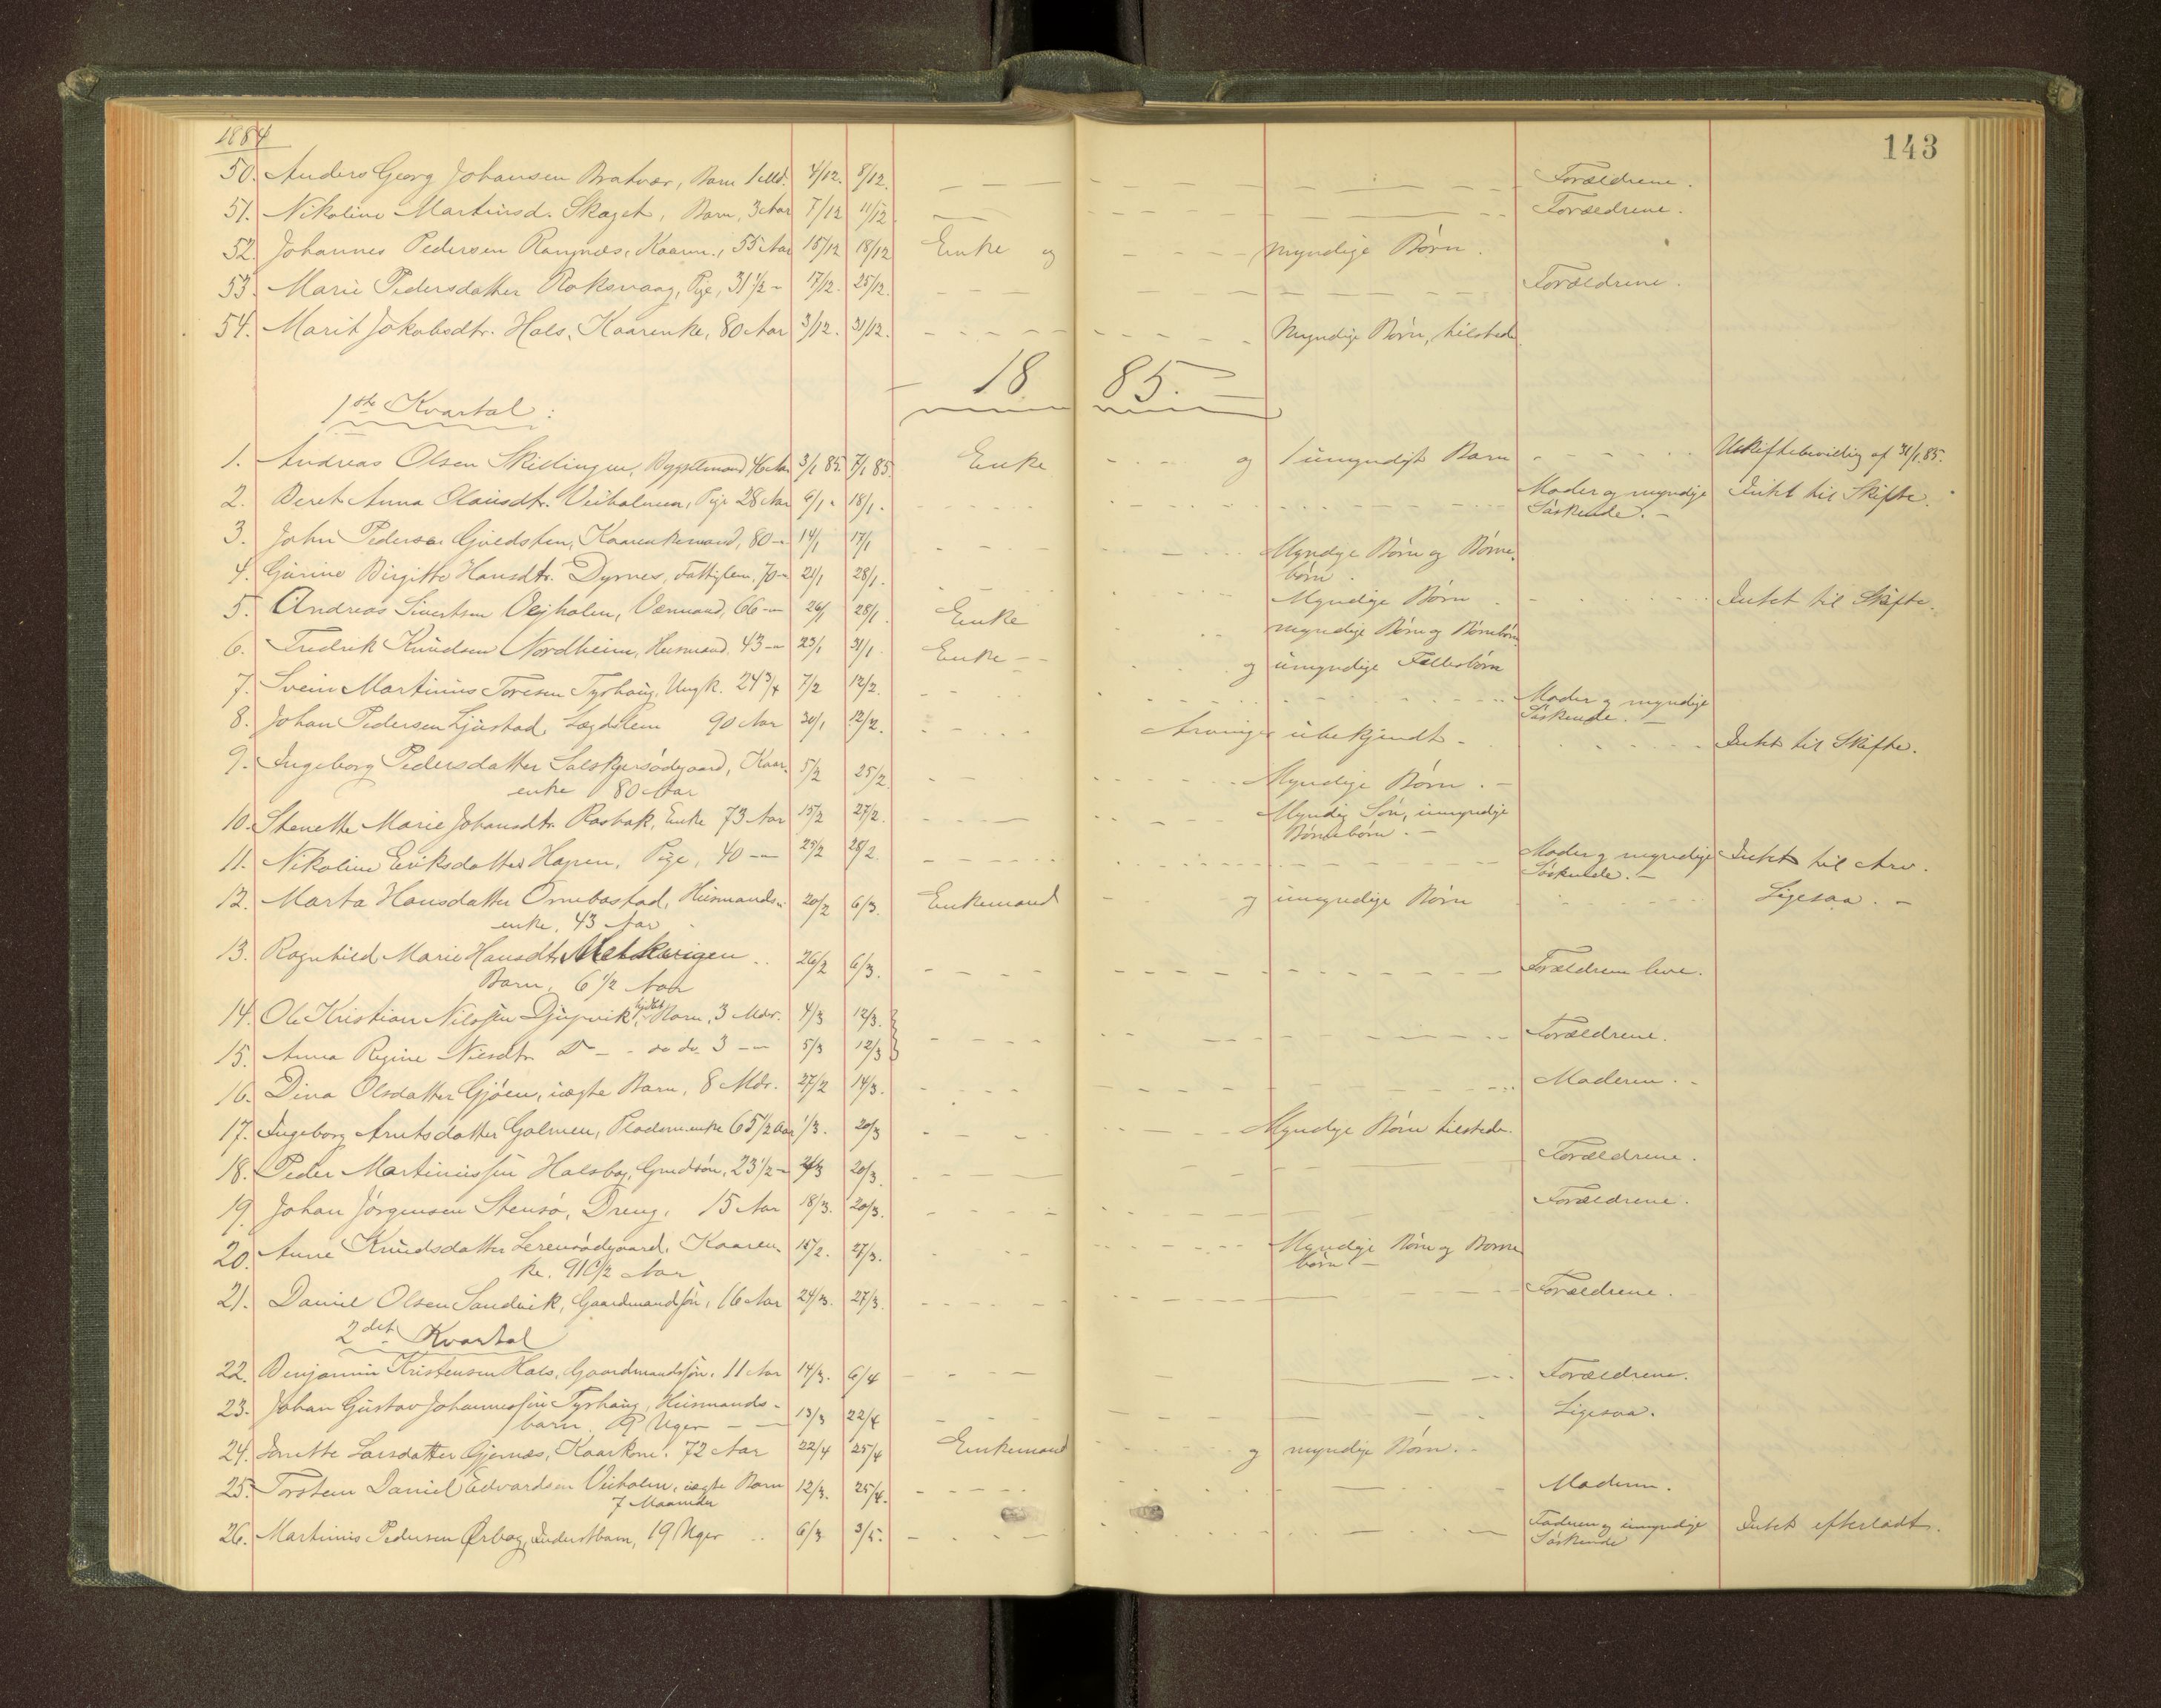 1884
143
50. Anders Georg Johansen Bratvær, Barn 1 Md. 4/12. 8/12. Forældrene.
51. Nikoline Martinsd. Skaget, Barn, 3 Aar 7/12 11/12. Forældrene.
52. Johannes Pedersen Ramnæs, Kaarm., 55 Aar 15/12 18/12 Enke og myndige Børn.
53. Marie Pedersdatter Roksvaag, Pige, 31 1/2 - 17/12. 25/12. Forældrene.
54. Marit Jakobsdtr. Hals, Kaarenke, 80 Aar 3/12. 31/12. Myndige Børn, tilstede.
1885.
1ste Kvartal:
1. Andreas Olsen Skillingen, Bygselmand 46 Aar 3/1 85. 7/1 85 Enke og 1 umyndigt Barn Uskiftebevilling af 31/1.85.
2. Beret Anna Olausdt. Veiholmen, Pige 28 Aar 6/1 - 18/1. Moder og myndige Intet til Skifte.
Søskende. -
3. John Pedersen Gullsten, Kaarenkemand, 80 - 14/1 17/1 Myndige Børn og Børne-
børn.
4. Gurine Birgitte Hansdtr. Dyrnes, Fattiglem, 70 - 21/1 28/1. Myndige Børn Intet til Skifte.
5. Andreas Sivertsen Vejholm, Værmand, 66 - 26/1 28/1. Enke myndige Børn og Børnebørn
6. Fredrik Knudsen Nordheim, Husmand, 43 - 23/1 31/1. Enke - og umyndige Fellesbørn
7. Svein Martinius Toresen Tyrhaug, Ungk. 24 3/4 7/2 12/2. Moder og myndige
Søskende. -
8. Johan Pedersen Ljustad, Lægdslem 90 Aar 30/1 12/2. Arvinger ubekjendt. Intet til Skifte.
9. Ingeborg Pedersdatter Salskjersødegaard, Kaar- 5/2 25/2 Myndige Børn. -
enke 80 Aar
10. Stenette Marie Johansdtr. Rasbak, Enke 73 Aar 15/2 27/2. Myndig Søn, umyndige
Børnebørn. -
11. Nikoline Eriksdatter Hagen, Pige, 40 - 25/2 28/2. Moder og myndige Intet til Arv.
Søskende. -
12. Marta Hansdatter Ornebostad, Husmands- 20/2 6/3. Enkemand og umyndige Børn Ligesaa. -
enke, 43 Aar
13. Ragnhild Marie Hansdtr. 26/2 6/3. Forældrene leve.
Barn, 6 1/2 Aar
14. Ole Kristian Nilssen Djupvik, Barn, 3 Mdr. 4/3 12/3. Forældrene.
15. Anna Regine Nilsdtr. do do 3 - 5/3 12/3
16. Dina Olsdatter Gjøen, uægte Barn, 8 Mdr. 27/2 14/3. Moderen. -
17. Ingeborg Arntsdatter Golmen, Pladsm.enke 65 1/2 Aar 1/3. 20/3 Myndige Børn tilstede.
18. Peder Martiniussen Halsbog, Grudsøn, 23 1/2 - 20/3. Forældrene.
19. Johan Jørgensen Stensø, Dreng, 15 Aar 18/3. 20/3. Forældrene.
20. Anne Knudsdatter Lerensødegaard, Kaaren- 15/2. 27/3. Myndige Børn og Børne
ke. 91 1/2 Aar børn -
21. Daniel Olsen Sandvik, Gaardmandssøn, 16 Aar 24/3. 27/3. Forældrene.
2det Kvartal
22. Benjamin Kristensen Hals, Gaardmandssøn, 11 Aar 14/3. 6/4 Forældrene.
23. Johan Gustav Johannessen Tyrhaug, Husmands-
barn, 9 Uger 13/3 22/4 Ligesaa.
24. Jonette Larsdatter Gjernæs, Kaarkone, 72 Aar 22/4 25/4 Enkemand og myndige Børn.
25. Torstein Daniel Edvardsen Veiholm, uægte Barn 12/3. 25/4. Moderen.
7 Maaneder
26. Martinus Pedersen Ørbog, Inderstbarn, 19 Uger 6/3 3/5. Faderen og umyndige Intet efterladt.
Søskende